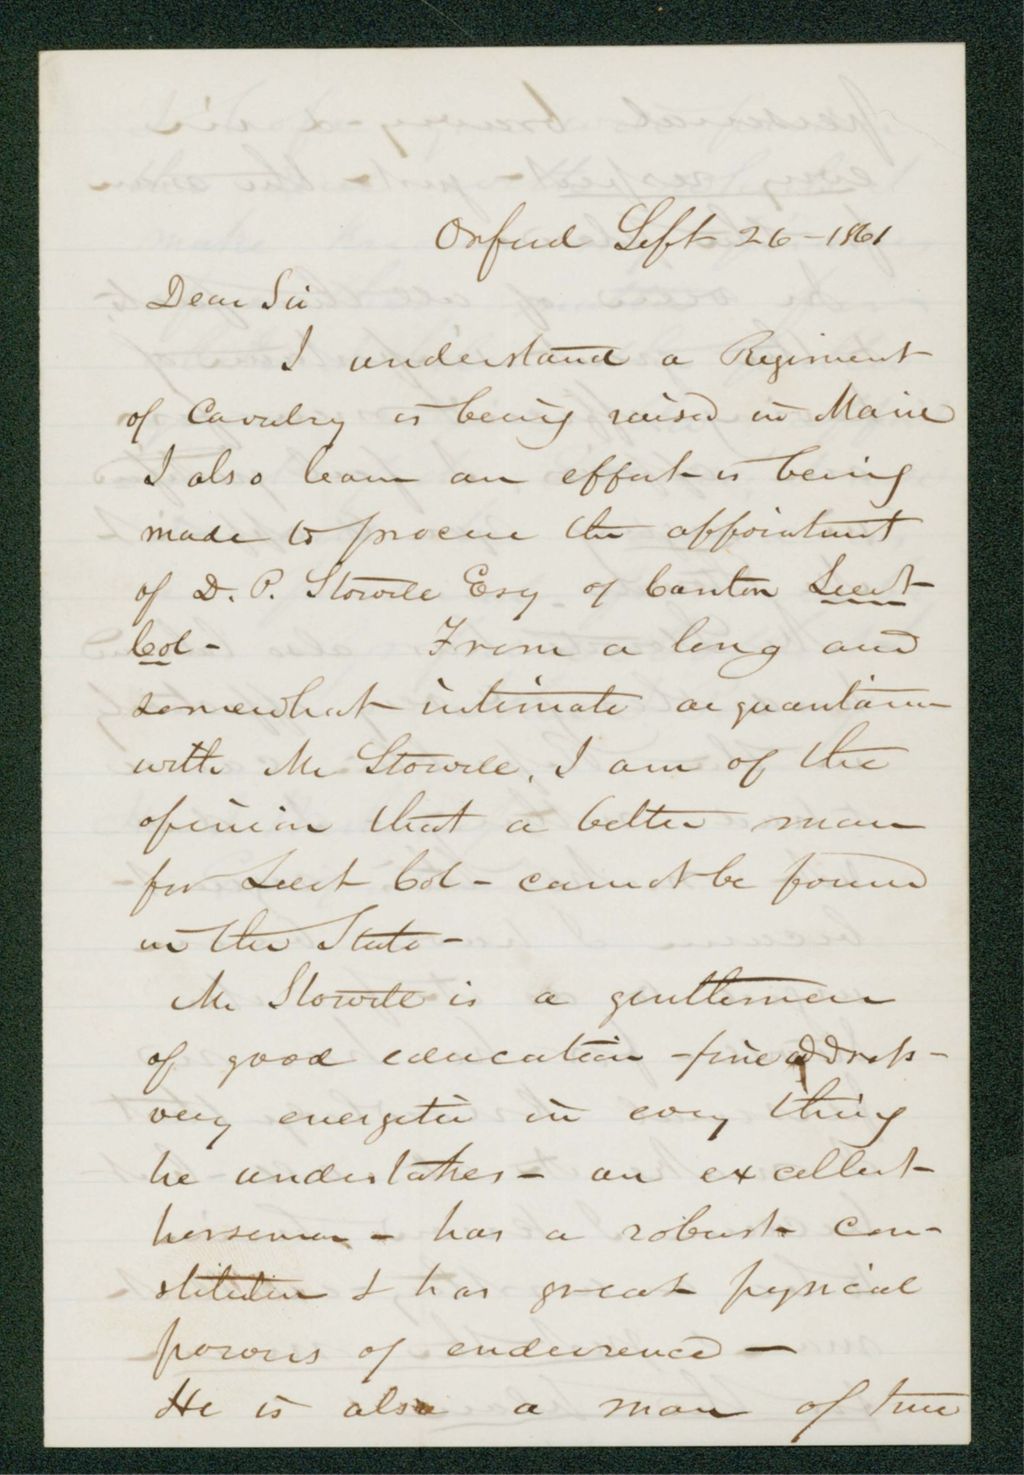 Oxford Sept 26 - 1861
Dear Sir
I understand a Regiment
of Cavalry is being raised in Maine
I also learn an effort is being
made to procure the appointment
of D. P. Stowell Esq of Canton Lieut
Col - From a long and
somewhat intimate acquantance
with Mr Stowell, I am of the
opinion that a better man
for Lieut Col - cannot be found
in the State -
Mr Stowell is a gentleman
of good education - fine address -
very energetic in every thing
he undertakes - an excellent
horseman - has a robust con-
stitution & has great pysical
powers of endurence -
He is also a man of true